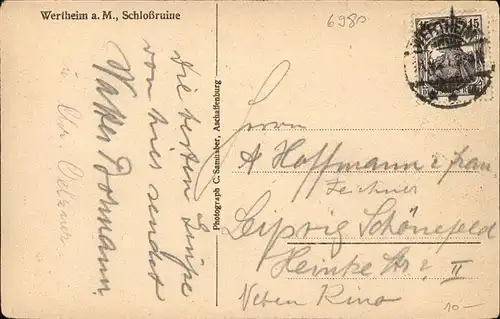 Wertheim a. M., Schloßruine
6980
15
WERTHEIM
Die besten Grüße
von hier sendet
Vatter Dormann
u.
Photograph C. Samhaber, Aschaffenburg
Herrn
A Hoffmann u frau
Zeichner
Leipzig Schönefeld
Heinke Str. II
Neben Kino
10-